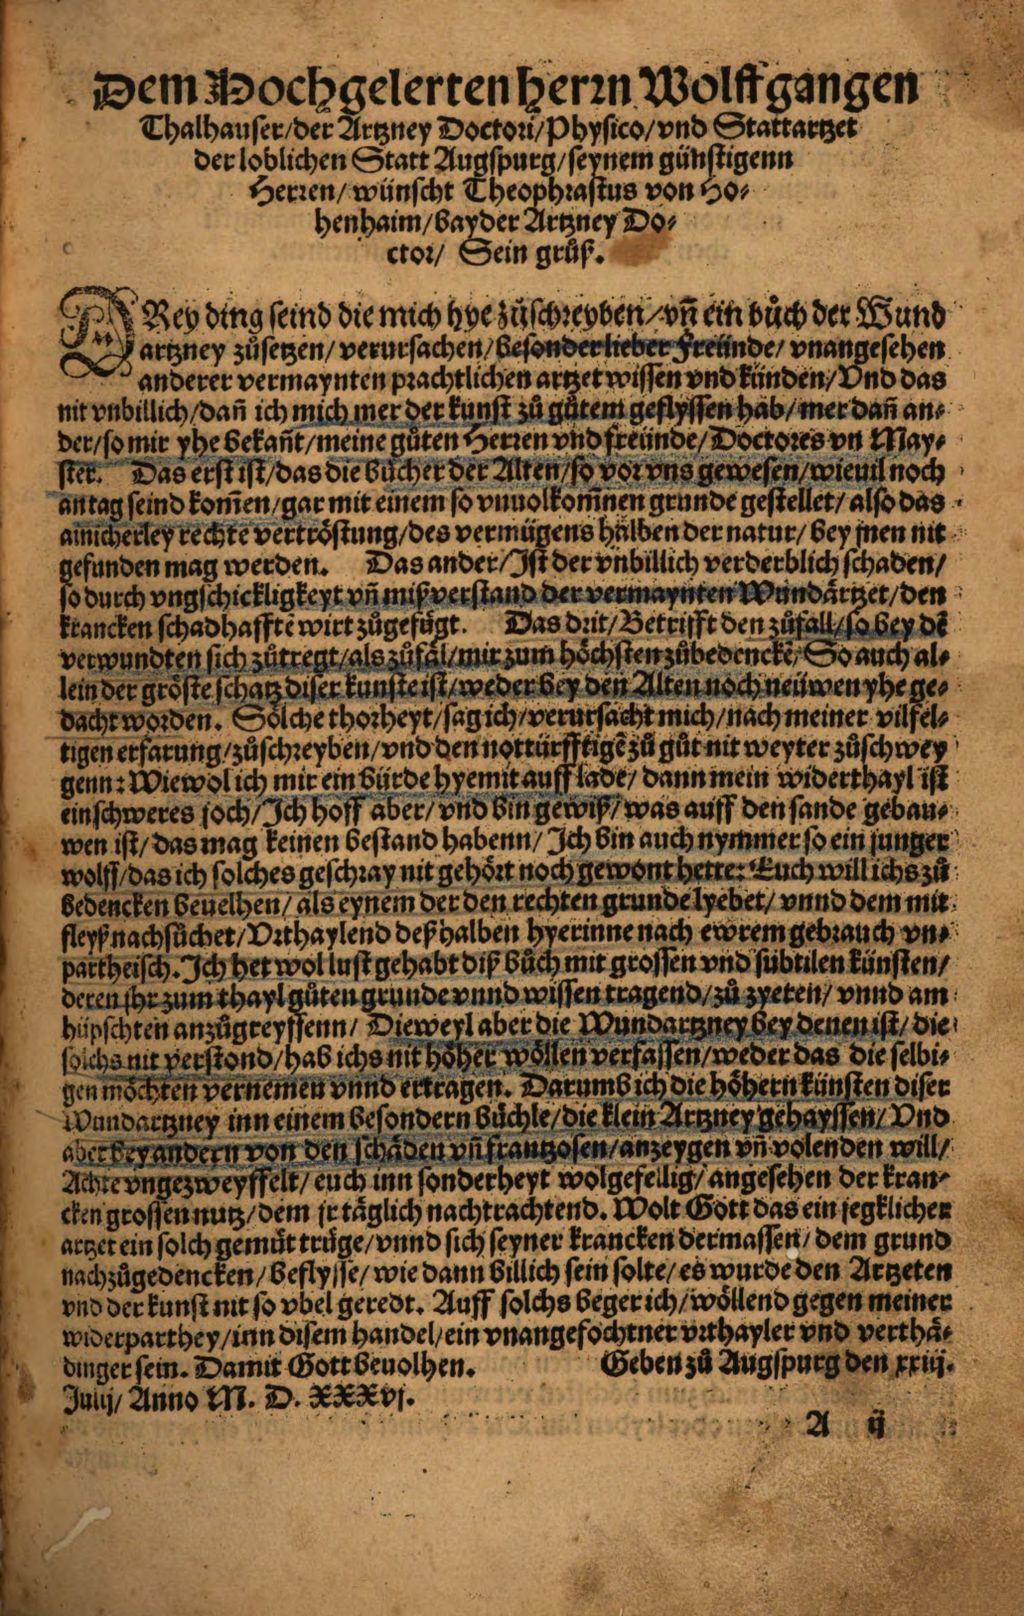 Dem Hochgelerten herꝛn Wolffgangen
Thalhauser/der Artzney Doctoꝛi/Physico/vnd Stattartzet
der loblichen Statt Augspurg/seynem günstigenn
Herꝛen/wünscht Theophrastus von Ho⸗
henhaim/bayder Artzney Do⸗
ctoꝛ/ Sein grůß.
DRey ding seind die mich hye zůschꝛeyben/vñ ein bůch der Wund
artzney zůsetzen/verursachen/besonder lieber Freünde/vnangesehen
anderer vermaynten pꝛachtlichen artzet wissen vnd künden/Vnd das
nit vnbillich/dañ ich mich mer der kunst zů gůtem geflyssen hab/mer dañ an⸗
der/so mir yhe bekañt/meine gůten Herꝛen vnd freünde/Doctoꝛes vñ May⸗
ster. Das erst ist/das die bücher der Alten/so voꝛ vns gewesen/wieuil noch
an tag seind kom̃en/gar mit einem so vnuolkom̃nen grunde gestellet/also das
ainicherley rechte vertröstung/des vermügens halben der natur/bey jnen nit
gefunden mag werden. Das ander/Ist der vnbillich verderblich schaden/
so durch vngschickligkeyt vñ mißverstand der vermaynten Wundärtzet/den
krancken schadhafftē wirt zůgefügt. Das dꝛit/Betrifft den zůfall/so bey dē
verwundten sich zůtregt/als zůfäl/mir zum höchsten zůbedenckē/So auch al⸗
lein der gröste schatz diser kunste ist/weder bey den Alten noch neüwen yhe ge⸗
dacht woꝛden. Sölche thoꝛheyt/sag ich/verursacht mich/nach meiner vilfel⸗
tigen erfarung/zůschꝛeyben/vnd den nottürfftigē zů gůt nit weyter zůschwey
genn: Wiewol ich mir ein bürde hyemit auff lade/dann mein widerthayl ist
ein schweres joch/Ich hoff aber/vnd bin gewiß/was auff den sande gebau⸗
wen ist/das mag keinen bestand habenn/Ich bin auch nymmer so ein junger
wolff/das ich solches geschꝛay nit gehöꝛt noch gewont hette: Euch will ichs zů
bedencken beuelhen/als eynem der den rechten grunde lyebet/vnnd dem mit
fleyß nachsůchet/Vꝛthaylend deßhalben hyerinne nach ewrem gebꝛauch vn⸗
partheisch. Ich het wol lust gehabt diß bůch mit grossen vnd subtilen künsten/
deren jhr zum thayl gůten grunde vnnd wissen tragend/zů zyeren/vnnd am
hüpschten anzůgreyffenn/Dieweyl aber die Wundartzney bey denen ist/die
solchs nit verstond/hab ichs nit höher wöllen verfassen/weder das die selbi⸗
gen möchten vernemen vnnd ertragen. Darumb ich die höhern künsten diser
Wundartzney inn einem besondern büchle/die klein Artzney gehayssen/Vnd
aber bey andern von den schäden vñ frantzosen/anzeygen vñ volenden will/
Achte vngezweyffelt/euch inn sonderheyt wolgefellig/angesehen der kran⸗
cken grossen nutz/dem jr täglich nachtrachtend. Wolt Gott das ein jegklicher
artzet ein solch gemüt trüge/vnnd sich seyner krancken dermassen/dem grund
nachzůgedencken/beflysse/wie dann billich sein solte/es wurde den Artzeten
vnd der kunst nit so vbel geredt. Auff solchs beger ich/wöllend gegen meiner
widerparthey/inn disem handel/ein vnangefochtner vꝛthayler vnd verthä⸗
dinger sein. Damit Gott beuolhen. Geben zů Augspurg den xxiij.
Julij/Anno M. D. XXXvj.
A ij